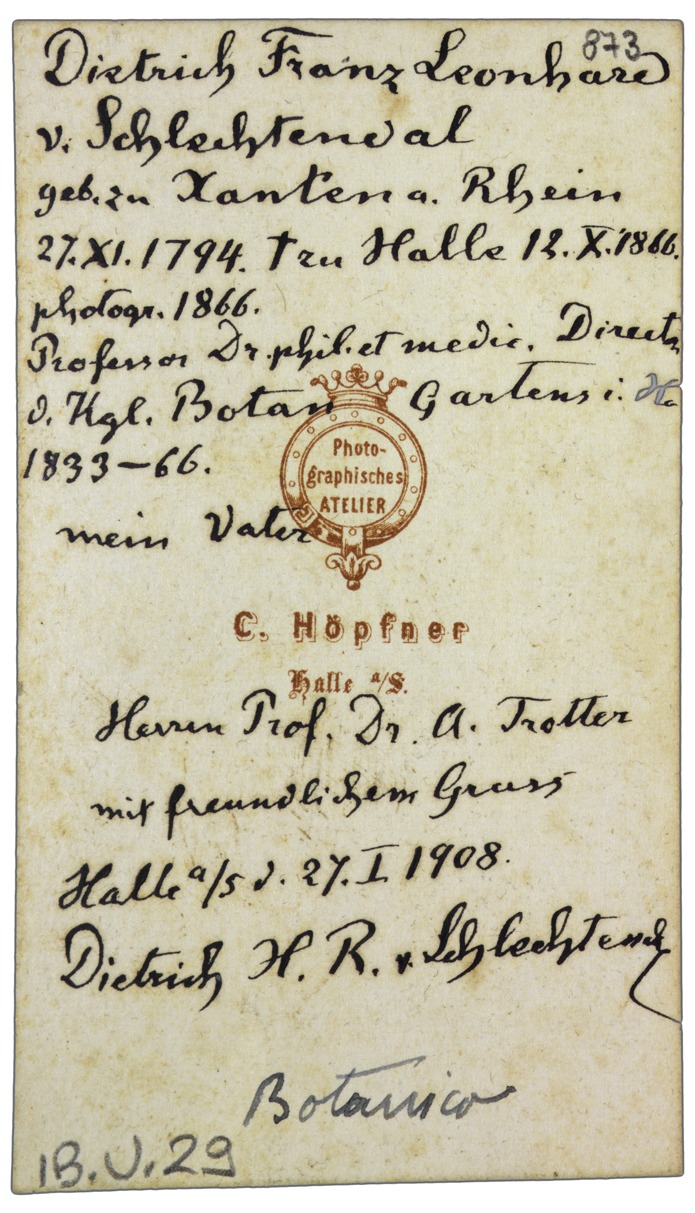 873
Dietrich Franz Leonhard
v. Schlechtendal
geb. zu Xanten a. Rhein
27. XI. 1794. † zu Halle 12. X. 1866.
photogr. 1866.
Professor Dr. phil. et medic. Direct
d. Kgl. Botan Gartens i. Ha
1833–66.
Photo-
graphisches
ATELIER
mein Vater
C. Höpfner
Halle a/S.
Herrn Prof. Dr. A. Trotter
mit freundlichem Gruss
Halle a/S d. 27. I 1908.
Dietrich H. R. v. Schlechtend
Botanico
IB.V.29